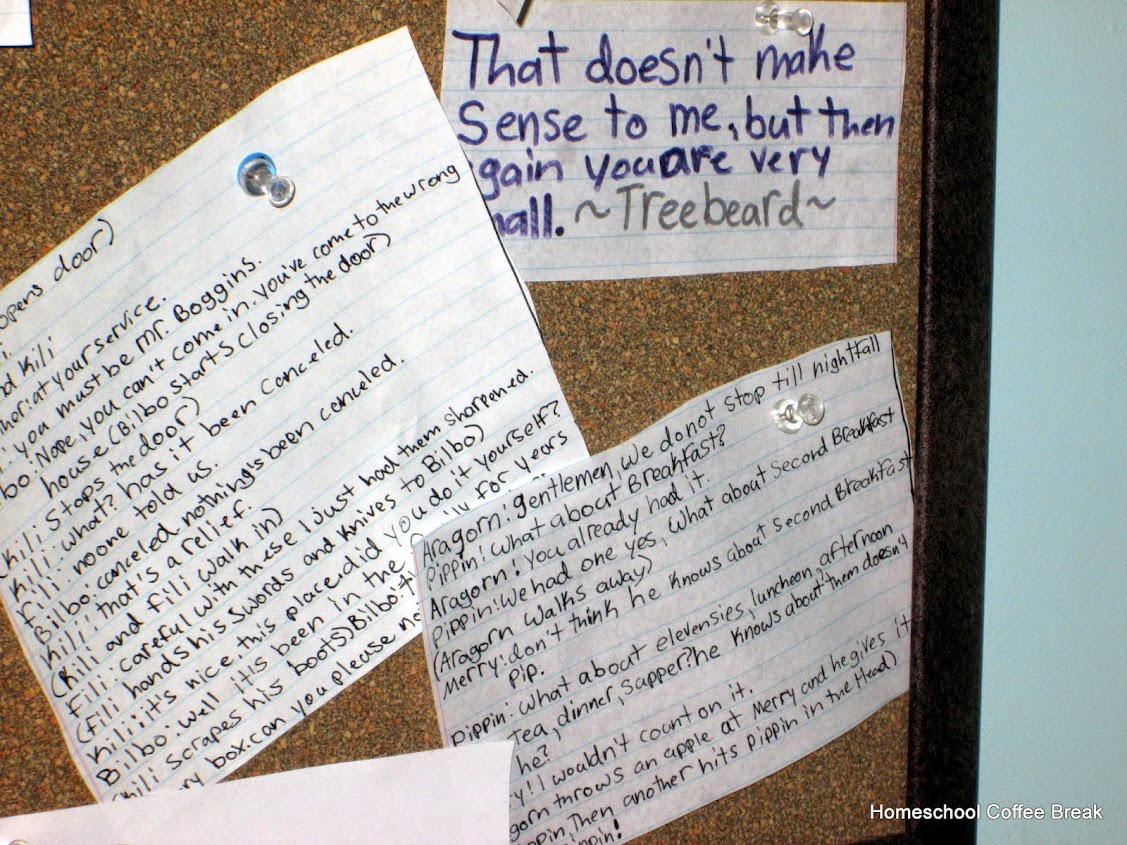 That doesn't make
Sense to me, but then
gain you are very
all. ~Treebeard~
opens door)
d Kili
at your service.
you must be Mr. Boggins.
bo: Nope, you can't come in. you've come to the wrong
house (Bilbo starts closing the door)
(Kili stops the door)
Kili: what? has it been canceled.
Fili: no one told us.
Bilbo: canceled nothing's been canceled.
Kili: that's a relief.
(Kili and Fili walk in)
Fili: careful with these I just had them sharpened.
(Fili hands his swords and knives to Bilbo)
Kili: it's nice this place. did you do it yourself?
Bilbo: well it's been in the ly for years
(Kili scrapes his boots) Bilbo:
ry box. can you please no
Aragorn: gentlemen, we do not stop till nightfall
Pippin: what about Breakfast?
Aragorn: you already had it.
Pippin: We had one yes, what about second Breakfast
(Aragorn walks away)
Merry: don't think he knows about second Breakfast
Pip.
Pippin: what about elevensies, luncheon, afternoon
tea, dinner, supper? he knows about them doesn't
he?
y: I wouldn't count on it.
gorn throws an apple at Merry and he gives it
ppin, Then another hits pippin in the Head)
ippin!
Homeschool Coffee Break